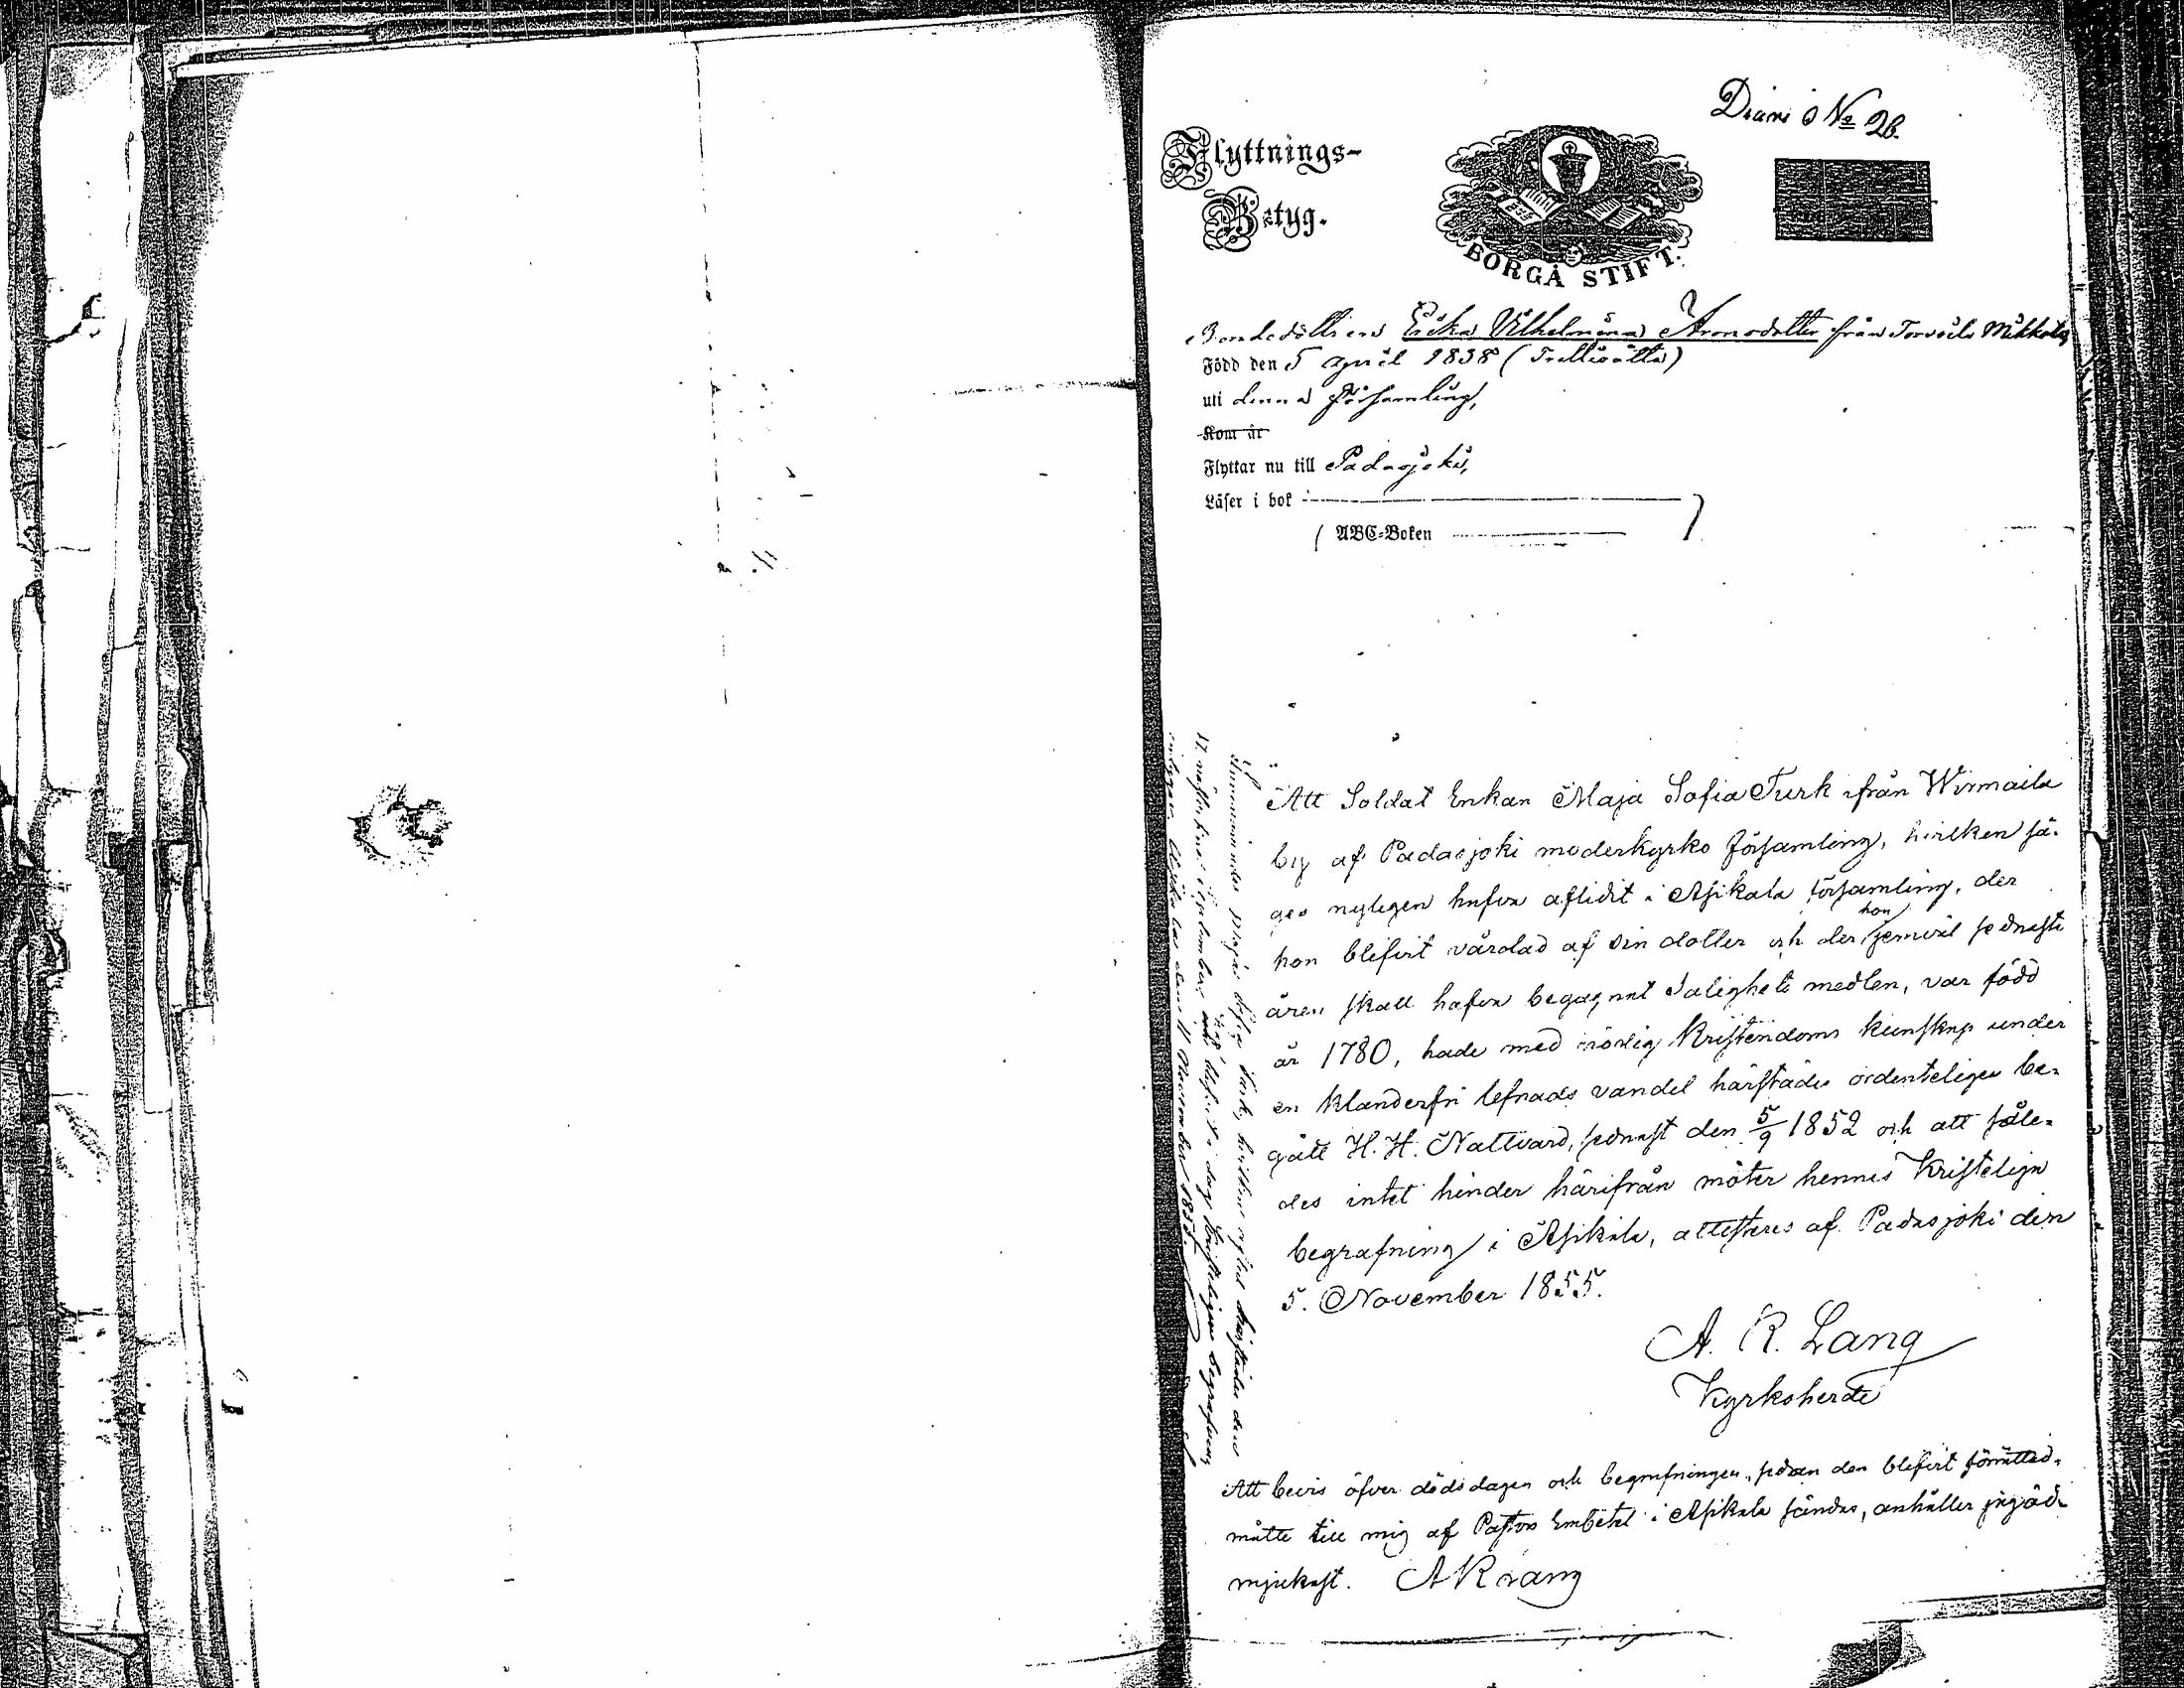 Diarii No 26.
Flyttnings-
Betyg.
BORGÅ STIFT.
Bondedottren Erika Vilhelmina Aronsdotter från Torvoila Mikkola
Född den 5 april 1838 (Trettioåtta)
uti denna Församling,
Kom år
Flyttar nu till Padasjoki,
Läser i bok
( ABC-Boken )
Att Soldat Enkan Maja Sofia Turk ifrån Wirmaila
by af Padasjoki moderkyrko församling, hvilken sä-
ges nyligen hafva aflidit i Asikala församling, der
hon blifvit vårdad af sin dotter och der hon jemväl sednaste
åren skall hafva begagnat Salighets medlen, var född
år 1780, hade med nödig Kristendoms kunskap under
en klanderfri lefnads vandel härstädes ordenteligen be-
gått H. H. Nattvard, sednast den 5/9 1852 och att såle-
des intet hinder härifrån möter hennes Kristeliga
begrafning i Asikala, attesteras af. Padasjoki den
5. November 1855.
A. R. Lang
Kyrkoherde
Att bevis öfver dödsdagen och begrafningen, sedan den blifvit förrättad,
måtte till mig af Pastors Embetet i Asikala sändas, anhåller jag öd-
mjukast. A R Lang
Maja Sofia Turk, hvilken aflidit härstädes den
17 nästl. September, har blifvit i dag kristeligen begrafven,
den 11 November 1855.